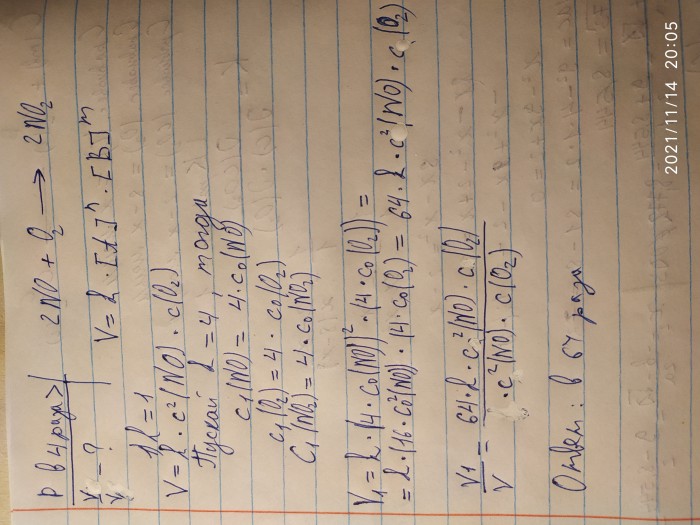 P в 4 раза> 2NO + O₂ → 2NO₂
V₁/V = ? V = k · [A]ⁿ · [B]ᵐ
k = 1
V = k · c²(NO) · c(O₂)
Пускай k = 4, тогда
c₁(NO) = 4 · c₀(NO)
c₁(O₂) = 4 · c₀(O₂)
C₁(NO₂) = 4 · c₀(NO₂)
V₁ = k · (4 · c₀(NO))² · (4 · c₀(O₂)) =
= k · (16 · c₀²(NO)) · (4 · c₀(O₂) = 64 · k · c²(NO) · c(O₂)
V₁/V = 64 · k · c²(NO) · c(O₂) / · c²(NO) · c(O₂)
Ответ: в 64 раза
2021/11/14 20:05